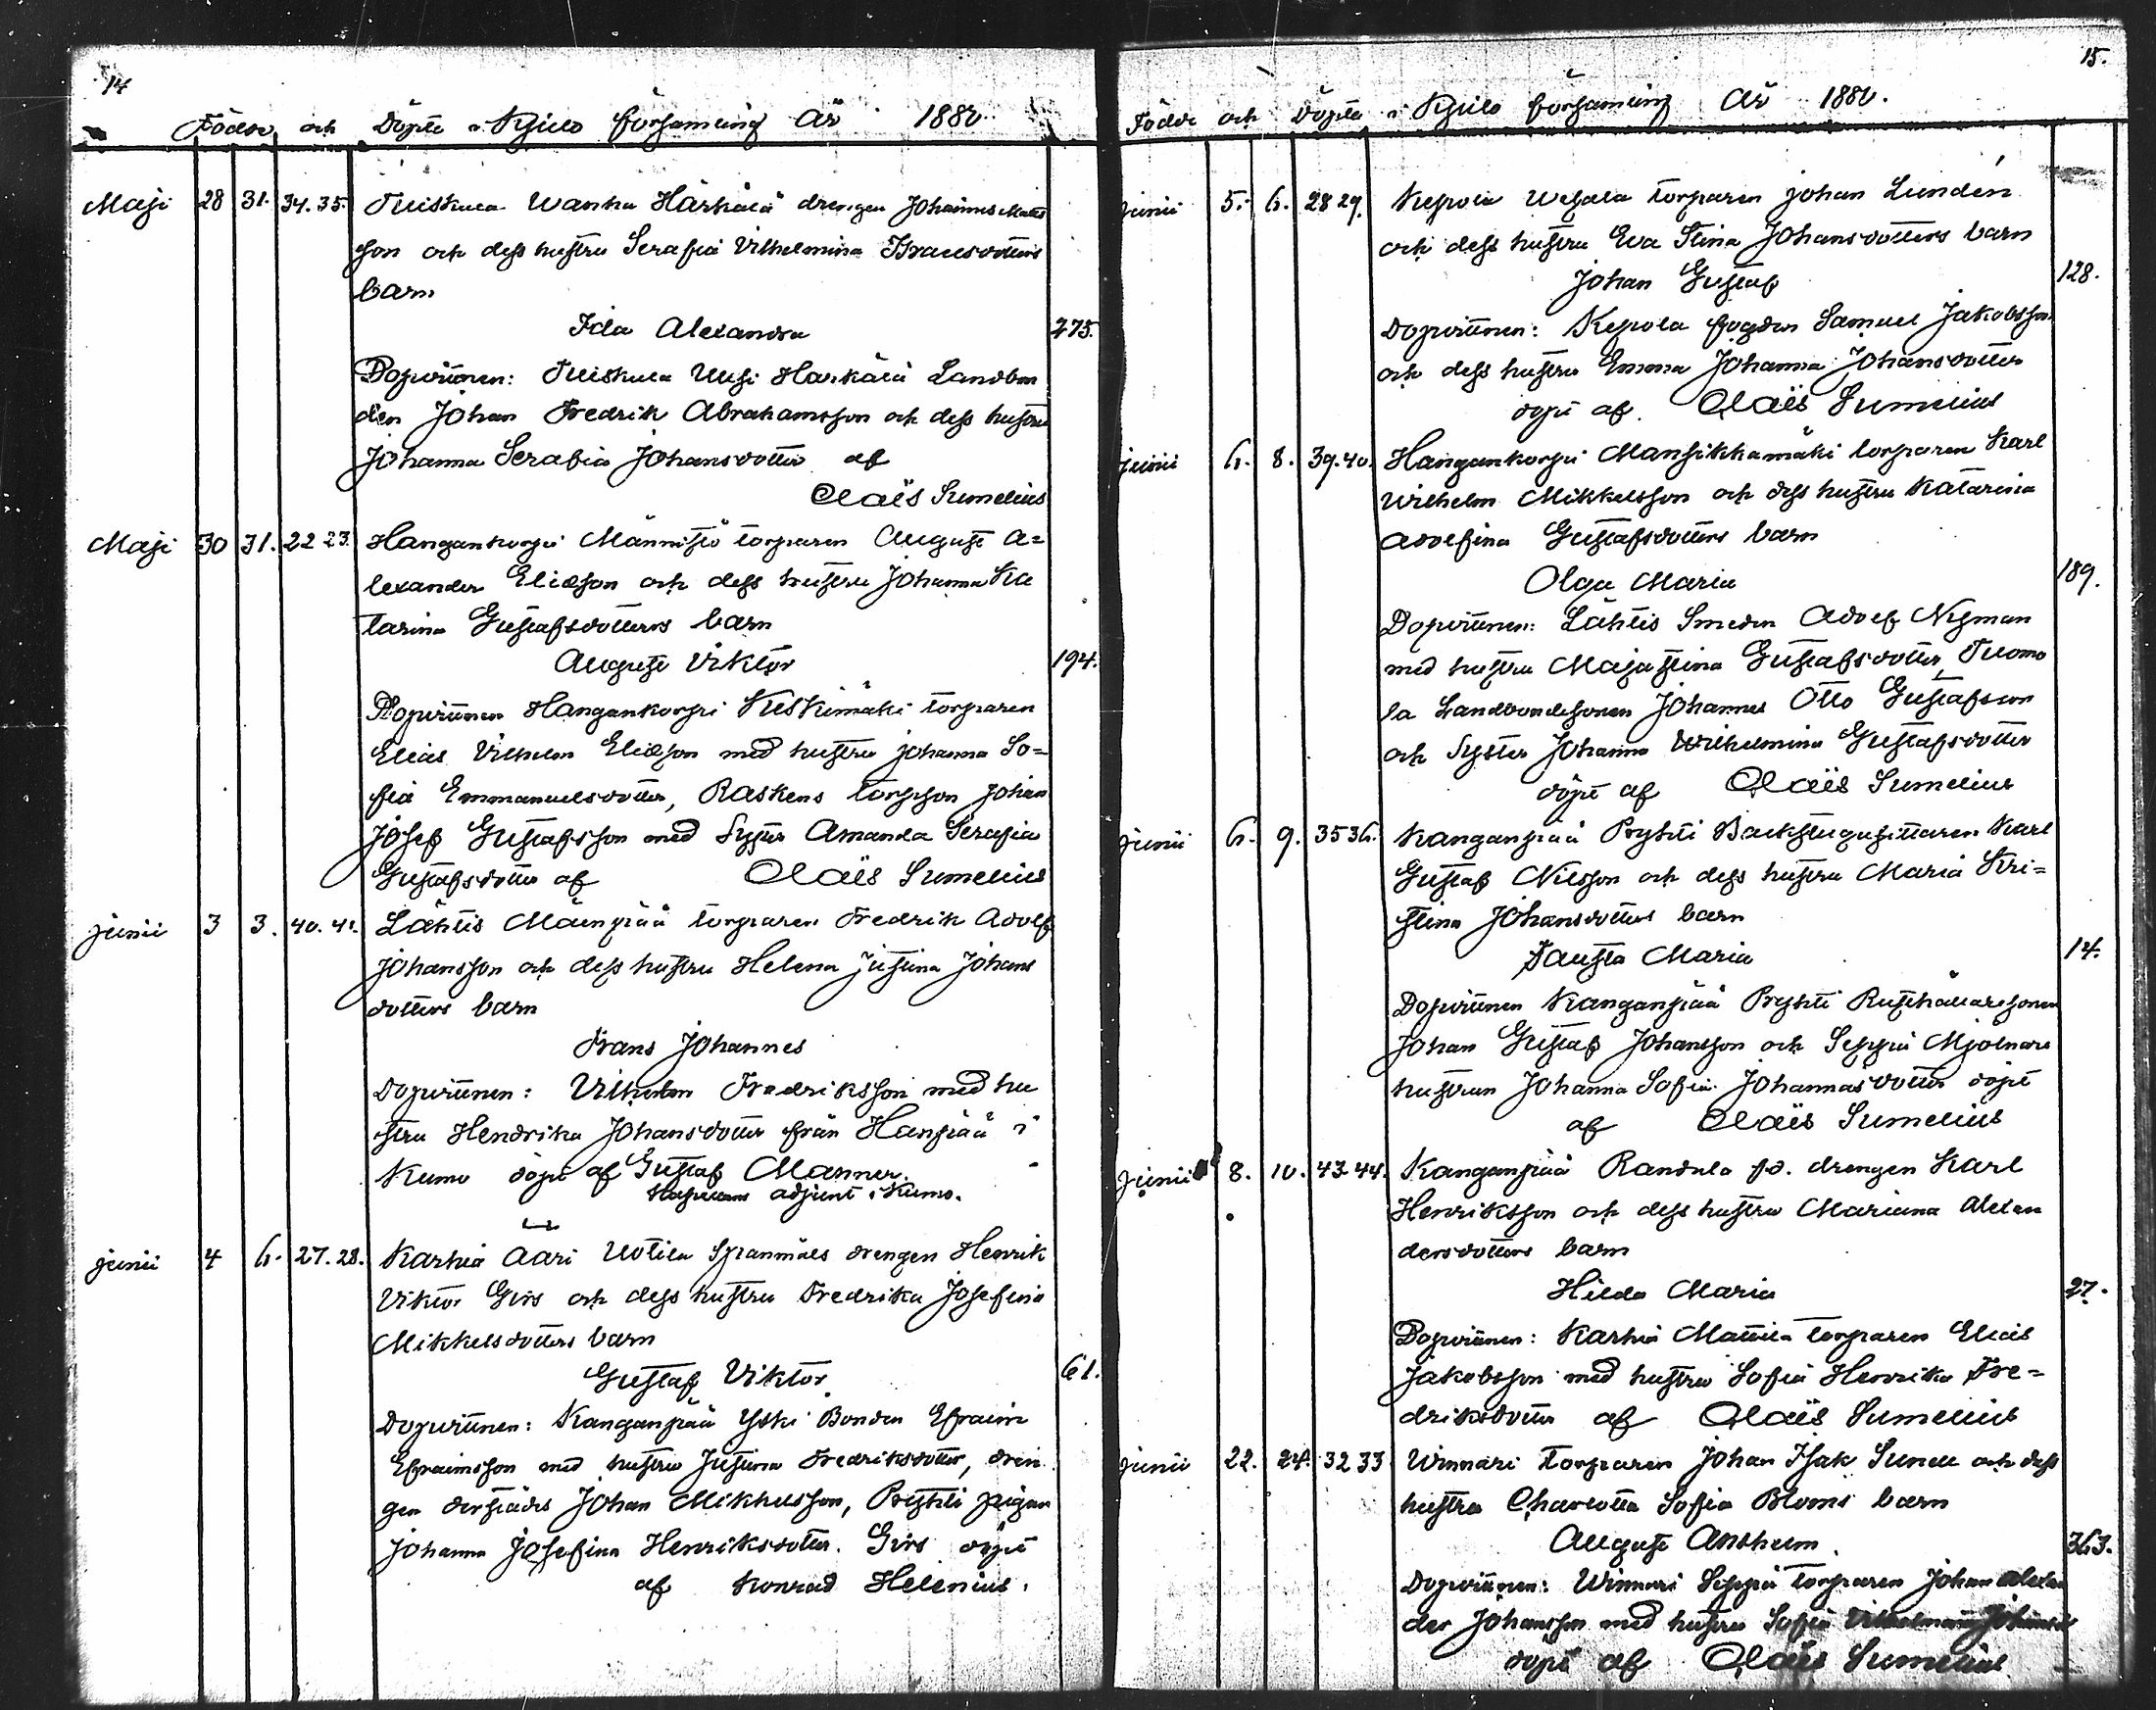 14
Födde och Döpte i Kjulo församling År 1880
Maji 28 31. 34. 35. Tuiskula Wanha Härkälä drengen Johannes Matts
son och dess hustru Serafia Vilhelmina Isaksdotters
barn
Ida Alexandra 275.
Dopvittnen: Tuiskula Uusi Härkälä Landbon
den Johan Fredrik Abrahamsson och dess hustru
Johanna Serafia Johansdotter af
Claës Sumelius
Maji 30 31. 22 23. Hangankorpi Männistö torparen August A=
lexander Eliasson och dess hustru Johanna Ka
tarina Gustafsdotters barn
August Viktor 194.
Dopvittnen Hangankorpi Keskimäki torparen
Elias Vilhelm Eliasson med hustru Johanna So=
fia Emmanuelsdotter, Raskens torpson Johan
Josef Gustafsson med Syster Amanda Serafia
Gustafsdotter af Claës Sumelius
junii 3 3. 40. 41. Lähtis Mäenpää torparen Fredrik Adolf
Johansson och dess hustru Helena Justina Johans
dotters barn
Frans Johannes
Dopvittnen: Vilhelm Fredriksson med hu
stru Hendrika Johansdotter från Hanpää i
Kumo döpt af Gustaf Manner.
Kapellans adjunt i Kumo.
junii 4 6. 27. 28. Karhia Äari Uotila Spannmåls drengen Henrik
Viktor Girs och dess hustru Fredrika Josefina
Mikkelsdotters barn
Gustaf Viktor 61.
Dopvittnen: Kanganpää Yski Bonden Efraim
Efraimsson med hustru Justina Fredriksdotter, dren
gen derstädes Johan Mikkelsson, Prykti pigan
Johanna Josefina Henriksdotter. Girs döpt
af Konrad Helenius.
15.
Födde och Döpte i Kjulo församling År 1880.
junii 5. 6. 28 29. Kepola Wejala torparen Johan Lundén
och dess hustru Eva Stina Johansdotters barn
Johan Gustaf 128.
Dopvittnen: Kepola fogden Samuel Jakobsson
och dess hustru Emma Johanna Johansdotter
döpt af Claës Sumelius
junii 6. 8. 39. 40. Hangankorpi Mansikkamäki torparen Karl
Wilhelm Mikkelsson och dess hustru Katarina
Adolfina Gustafsdotters barn
Olga Maria 189.
Dopvittnen: Lähtis Smeden Adolf Nyman
med hustru Maja Stina Gustafsdotter, Tuomo
la Landbondesonen Johannes Otto Gustafsson
och Syster Johanna Wilhelmina Gustafsdotter
döpt af Claës Sumelius
junii 6. 9. 35 36. Kanganpää Prykti Backstugusittaren Karl
Gustaf Nilsson och dess hustru Maria Kri=
stina Johansdotters barn
Fausta Maria 14.
Dopvittnen Kanganpää Prykti Rusthållaresonen
Johan Gustaf Johansson och Seppä Mjölnare
hustrun Johanna Sofia Johannasdotter döpt
af Claës Sumelius
Junii 8. 10. 43 44. Kanganpää Randula fd. drengen Karl
Henriksson och dess hustru Mariana Alexan
dersdotters barn
Hilda Maria 27.
Dopvittnen: Karhia Mattila torparen Elias
Jakobsson med hustru Sofia Henrika Fre=
driksdotter af Claës Sumelius
junii 22. 24. 32 33 Winnari torparen Johan Isak Sunell och dess
hustru Charlotta Sofia Bloms barn
August Anshelm 363.
Dopvittnen: Winnari Seppä torparen Johan Alexan
der Johansson med hustru Sofia Vilhelmina Johansd
döpt af Claës Sumelius